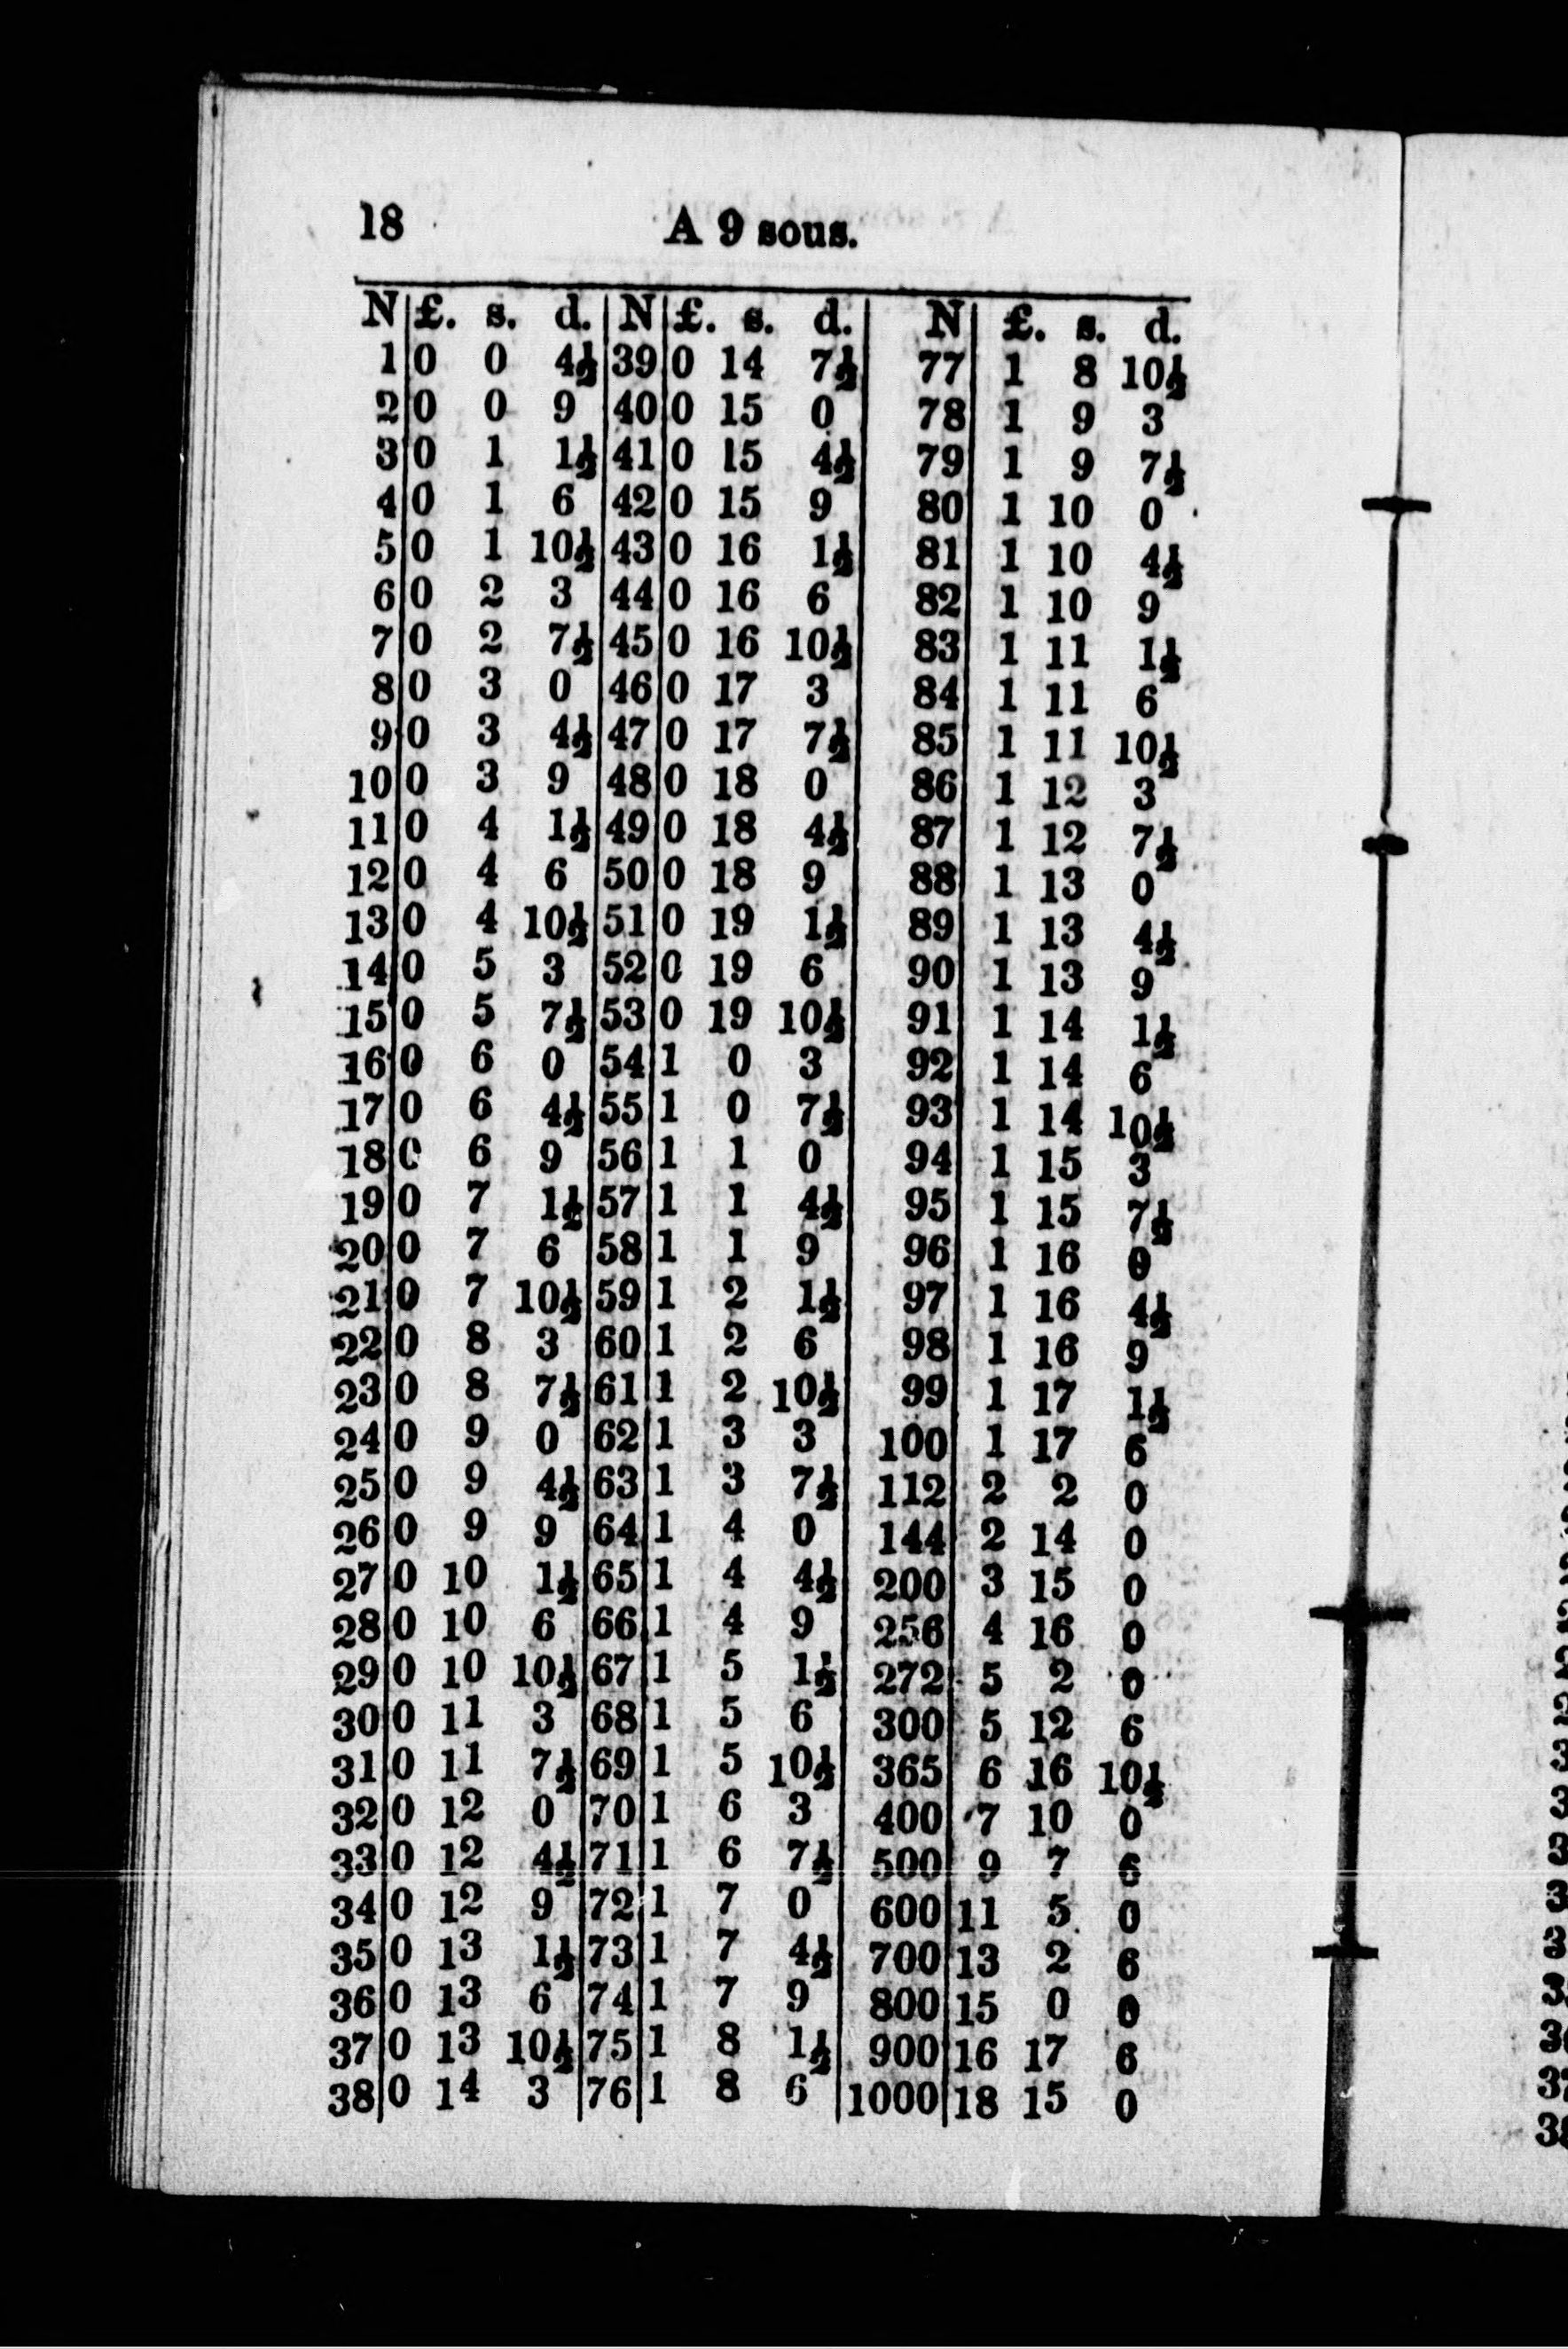 18 A 9 sous.
N £. s. d. N £. s. d. N £. s. d.
1 0 0 4½ 39 0 14 7½ 77 1 8 10½
2 0 0 9 40 0 15 0 78 1 9 3
3 0 1 1½ 41 0 15 4½ 79 1 9 7½
4 0 1 6 42 0 15 9 80 1 10 0
5 0 1 10½ 43 0 16 1½ 81 1 10 4½
6 0 2 3 44 0 16 6 82 1 10 9
7 0 2 7½ 45 0 16 10½ 83 1 11 1½
8 0 3 0 46 0 17 3 84 1 11 6
9 0 3 4½ 47 0 17 7½ 85 1 11 10½
10 0 3 9 48 0 18 0 86 1 12 3
11 0 4 1½ 49 0 18 4½ 87 1 12 7½
12 0 4 6 50 0 18 9 88 1 13 0
13 0 4 10½ 51 0 19 1½ 89 1 13 4½
14 0 5 3 52 0 19 6 90 1 13 9
15 0 5 7½ 53 0 19 10½ 91 1 14 1½
16 0 6 0 54 1 0 3 92 1 14 6
17 0 6 4½ 55 1 0 7½ 93 1 14 10½
18 0 6 9 56 1 1 0 94 1 15 3
19 0 7 1½ 57 1 1 4½ 95 1 15 7½
20 0 7 6 58 1 1 9 96 1 16 0
21 0 7 10½ 59 1 2 1½ 97 1 16 4½
22 0 8 3 60 1 2 6 98 1 16 9
23 0 8 7½ 61 1 2 10½ 99 1 17 1½
24 0 9 0 62 1 3 3 100 1 17 6
25 0 9 4½ 63 1 3 7½ 112 2 2 0
26 0 9 9 64 1 4 0 144 2 14 0
27 0 10 1½ 65 1 4 4½ 200 3 15 0
28 0 10 6 66 1 4 9 256 4 16 0
29 0 10 10½ 67 1 5 1½ 272 5 2 0
30 0 11 3 68 1 5 6 300 5 12 6
31 0 11 7½ 69 1 5 10½ 365 6 16 10½
32 0 12 0 70 1 6 3 400 7 10 0
33 0 12 4½ 71 1 6 7½ 500 9 7 6
34 0 12 9 72 1 7 0 600 11 5 0
35 0 13 1½ 73 1 7 4½ 700 13 2 6
36 0 13 6 74 1 7 9 800 15 0 0
37 0 13 10½ 75 1 8 1½ 900 16 17 6
38 0 14 3 76 1 8 6 1000 18 15 0